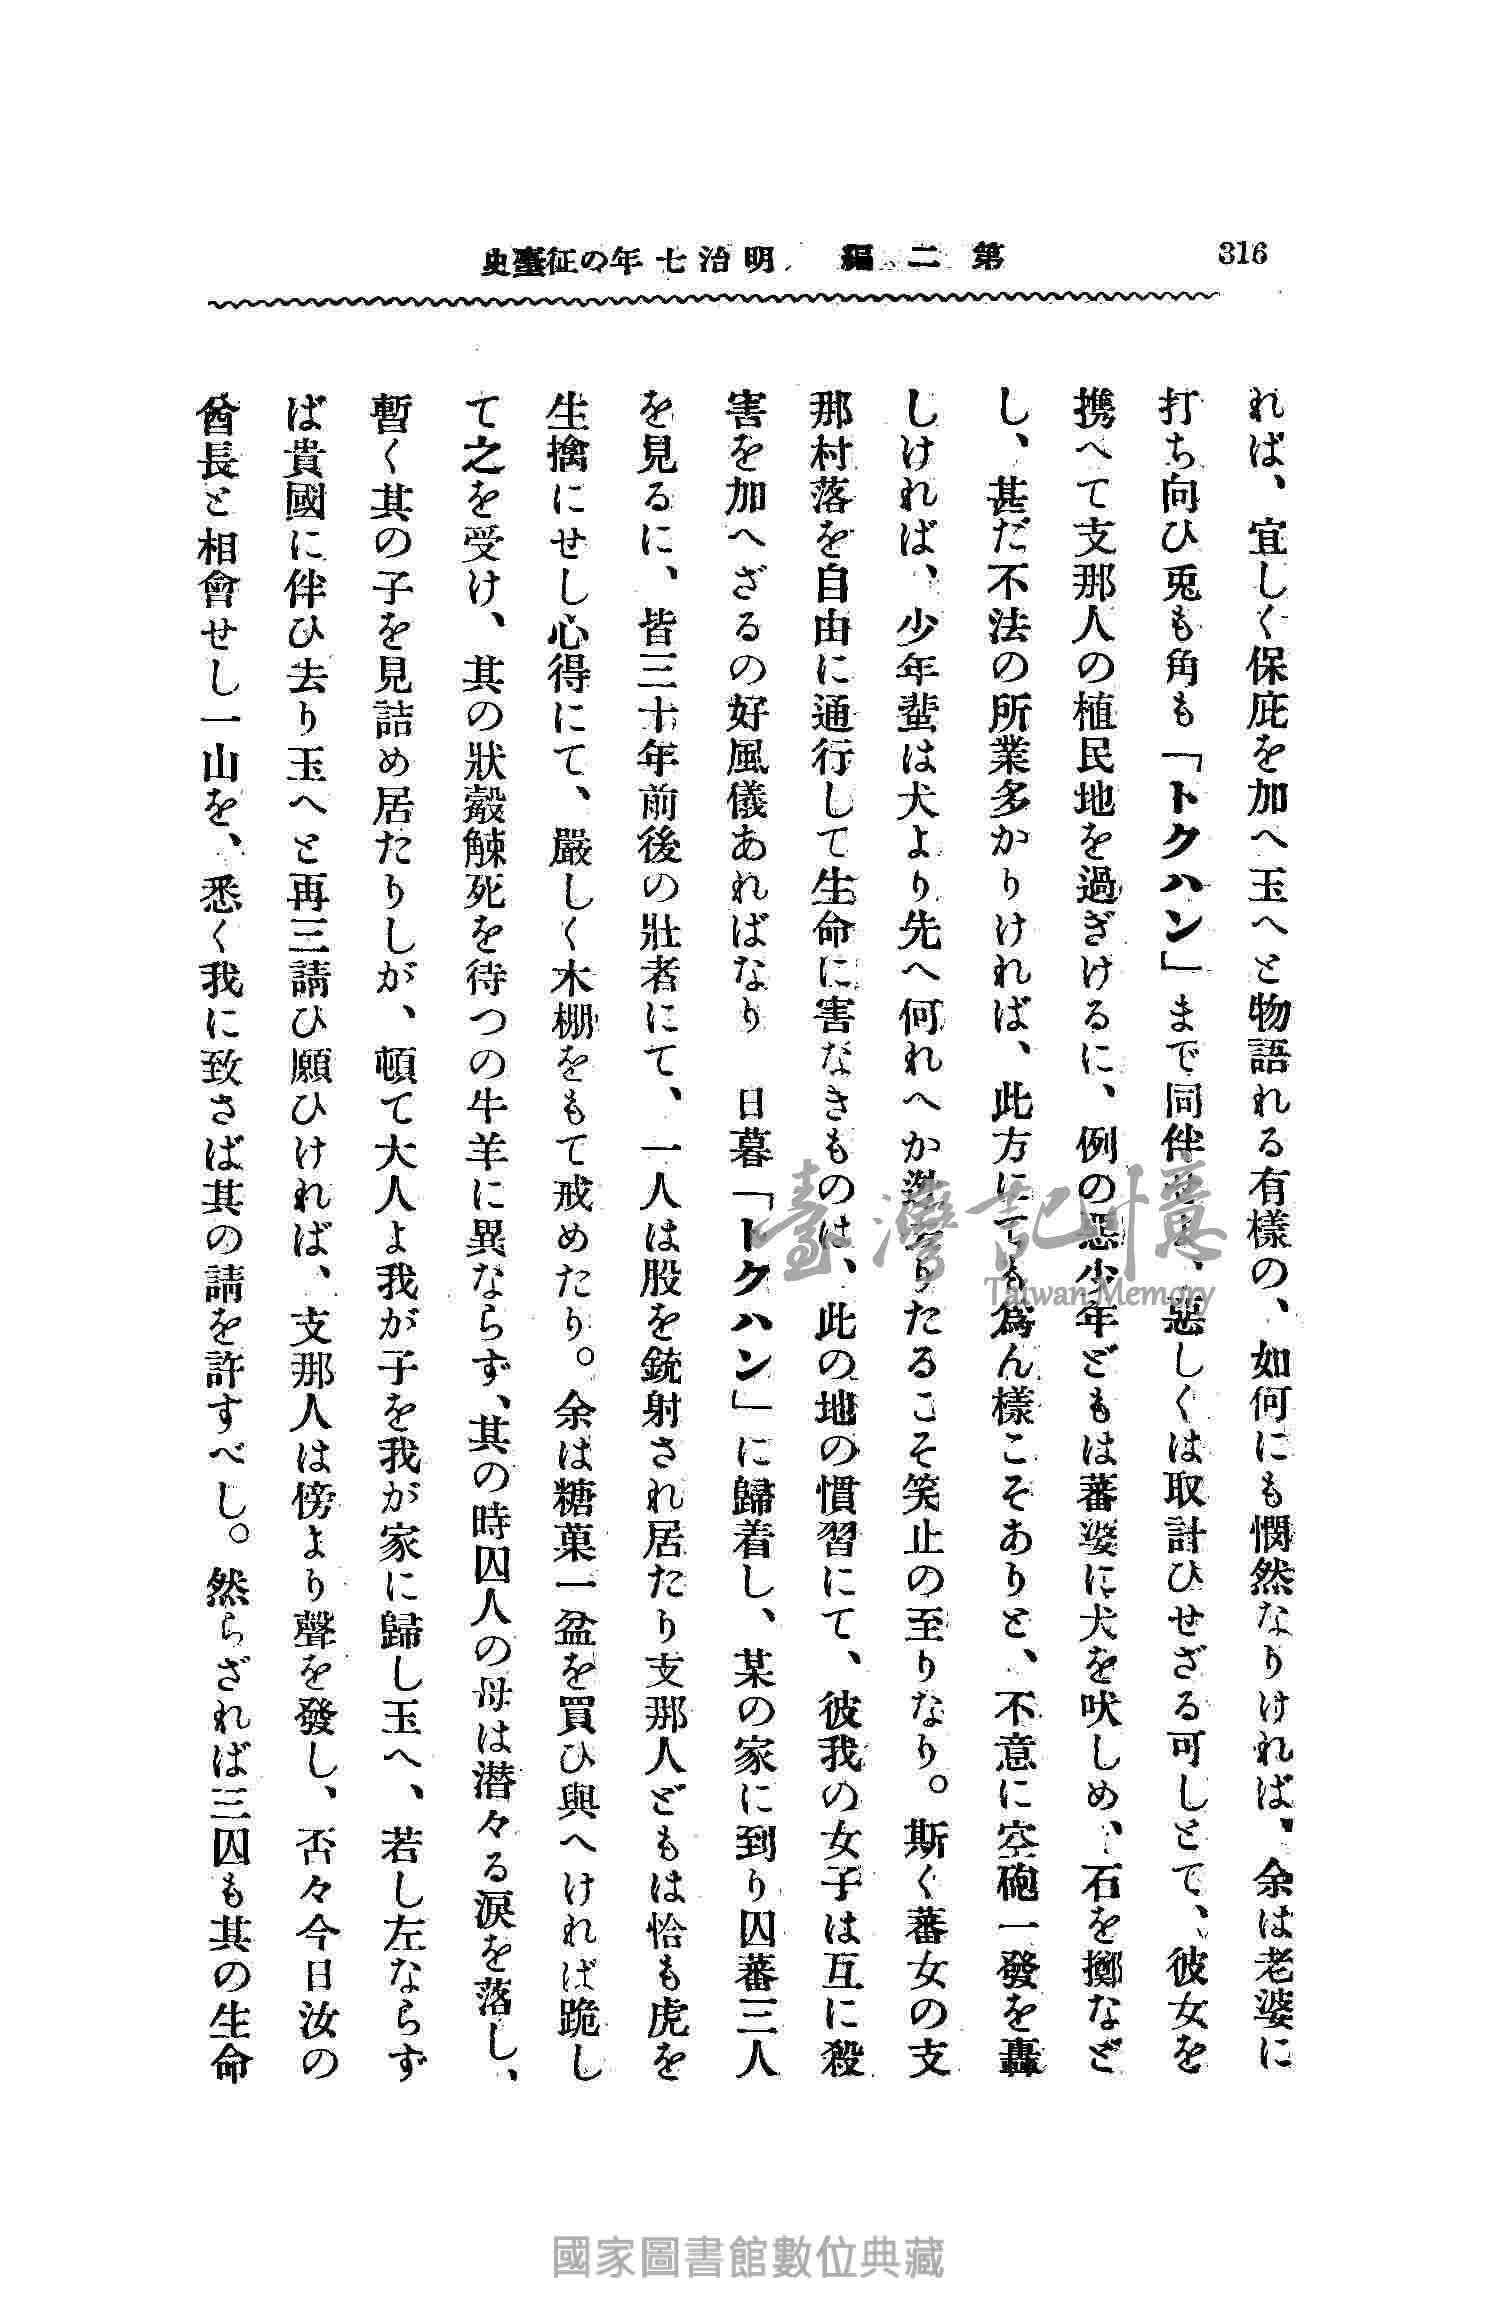 316
第二編 明治七年の征臺史
れば、宜しく保庇を加へ玉へと物語れる有様の、如何にも憫然なりければ、余は老婆に
打ち向ひ兎も角も「トクハン」まで同伴せよ、惡しくは取計ひせざる可しとて、彼女を
携へて支那人の植民地を過ぎけるに、例の惡少年どもは蕃婆に犬を吠しめ、石を擲など
し、甚だ不法の所業多かりければ、此方にても爲ん樣こそありと、不意に空砲一發を轟
しければ、少年輩は犬より先へ何れへか逃去りたるこそ笑止の至りなり。斯く蕃女の支
那村落を自由に通行して生命に害なきものは、此の地の慣習にて、彼我の女子は互に殺
害を加へざるの好風儀あればなり 日暮「トクハン」に歸着し、某の家に到り囚蕃三人
を見るに、皆三十年前後の壯者にて、一人は股を銃射され居たり支那人どもは恰も虎を
生擒にせし心得にて、嚴しく木棚をもて戒めたり。余は糖菓一盆を買ひ與へければ跪し
て之を受け、其の狀觳觫死を待つの牛羊に異ならず、其の時囚人の母は潜々る淚を落し、
暫く其の子を見詰め居たりしが、頓て大人よ我が子を我が家に歸し玉へ、若し左ならず
ば貴國に伴ひ去り玉へと再三請ひ願ひければ、支那人は傍より聲を發し、否々今日汝の
酋長と相會せし一山を、悉く我に致さば其の請を許すべし。然らざれば三囚も其の生命
臺灣記憶
Taiwan Memory
國家圖書館數位典藏